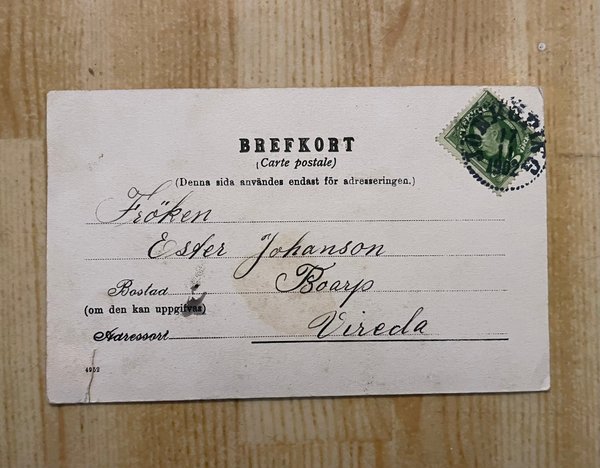 BREFKORT
(Carte postale)
(Denna sida användes endast för adresseringen.)
Fröken
Ester Johanson
Bostad Boarp
(om den kan uppgifvas)
Adressort Vireda
4952